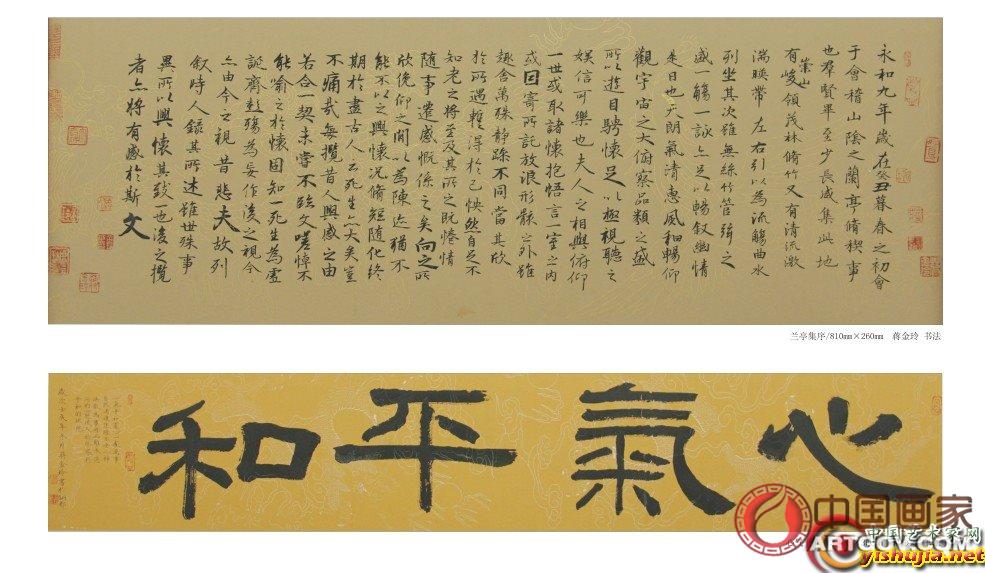 永和九年歲在癸丑暮春之初會
于會稽山陰之蘭亭脩稧事
也羣賢畢至少長咸集此地
有崇山峻領茂林脩竹又有清流激
湍暎帶左右引以為流觴曲水
列坐其次雖無絲竹管弦之
盛一觴一詠亦足以暢叙幽情
是日也天朗氣清惠風和暢仰
觀宇宙之大俯察品類之盛
所以遊目騁懷足以極視聽之
娛信可樂也夫人之相與俯仰
一世或取諸懷抱悟言一室之内
或因寄所託放浪形骸之外雖
趣舍萬殊靜躁不同當其欣
於所遇輙得於己怏然自足不
知老之將至及其所之既惓情
隨事遷感慨係之矣向之所
欣俛仰之間以為陳迹猶不
能不以之興懷況脩短隨化終
期於盡古人云死生亦大矣豈
不痛哉每攬昔人興感之由
若合一契未嘗不臨文嗟悼不
能喻之於懷固知一死生為虛
誕齊彭殤為妄作後之視今
亦由今之視昔悲夫故列
叙時人錄其所述雖世殊事
異所以興懷其致一也後之攬
者亦將有感於斯文
兰亭集序/810mm×260mm 蒋金玲 书法
心氣平和
中国画家
ARTGOV.COM
中国艺术家网
yishujia.net